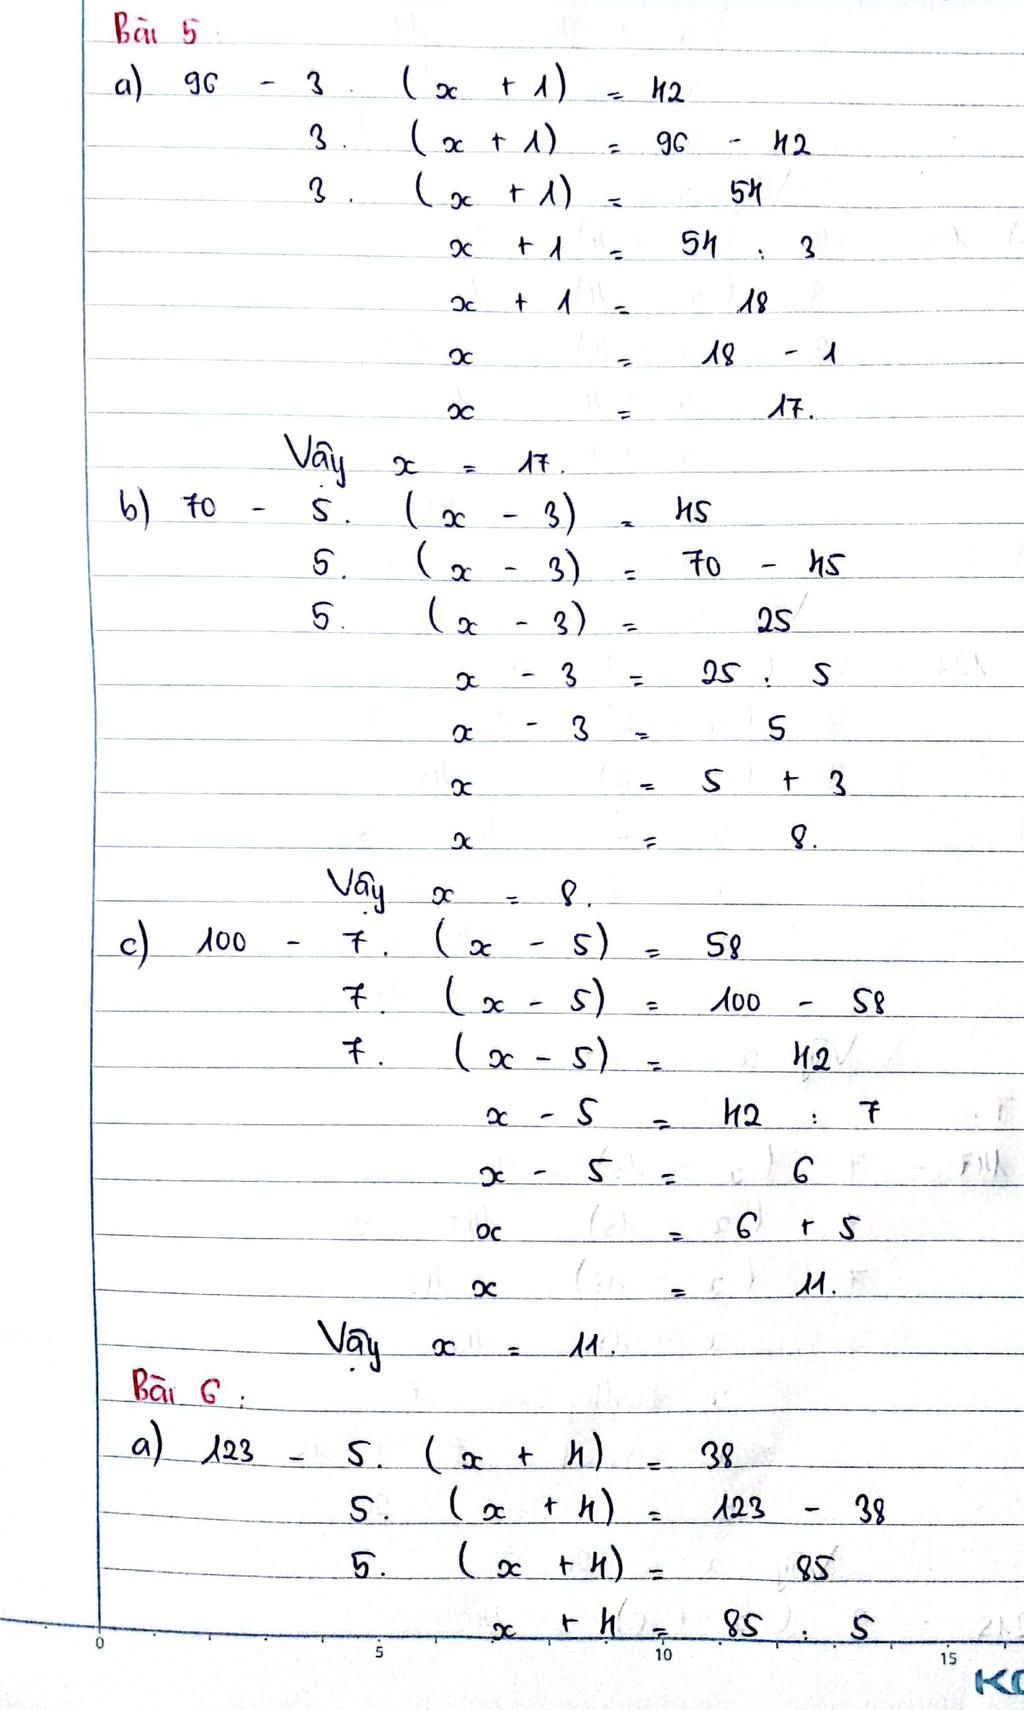 Bài 5:
a) 96 - 3 . (x + 1) = 42
3 . (x + 1) = 96 - 42
3 . (x + 1) = 54
x + 1 = 54 : 3
x + 1 = 18
x = 18 - 1
x = 17.
Vậy x = 17.
b) 70 - 5 . (x - 3) = 45
5 . (x - 3) = 70 - 45
5 . (x - 3) = 25
x - 3 = 25 : 5
x - 3 = 5
x = 5 + 3
x = 8.
Vậy x = 8.
c) 100 - 7 . (x - 5) = 58
7 . (x - 5) = 100 - 58
7 . (x - 5) = 42
x - 5 = 42 : 7
x - 5 = 6
x = 6 + 5
x = 11.
Vậy x = 11.
Bài 6:
a) 123 - 5 . (x + 4) = 38
5 . (x + 4) = 123 - 38
5 . (x + 4) = 85
x + 4 = 85 : 5
0 5 10 15